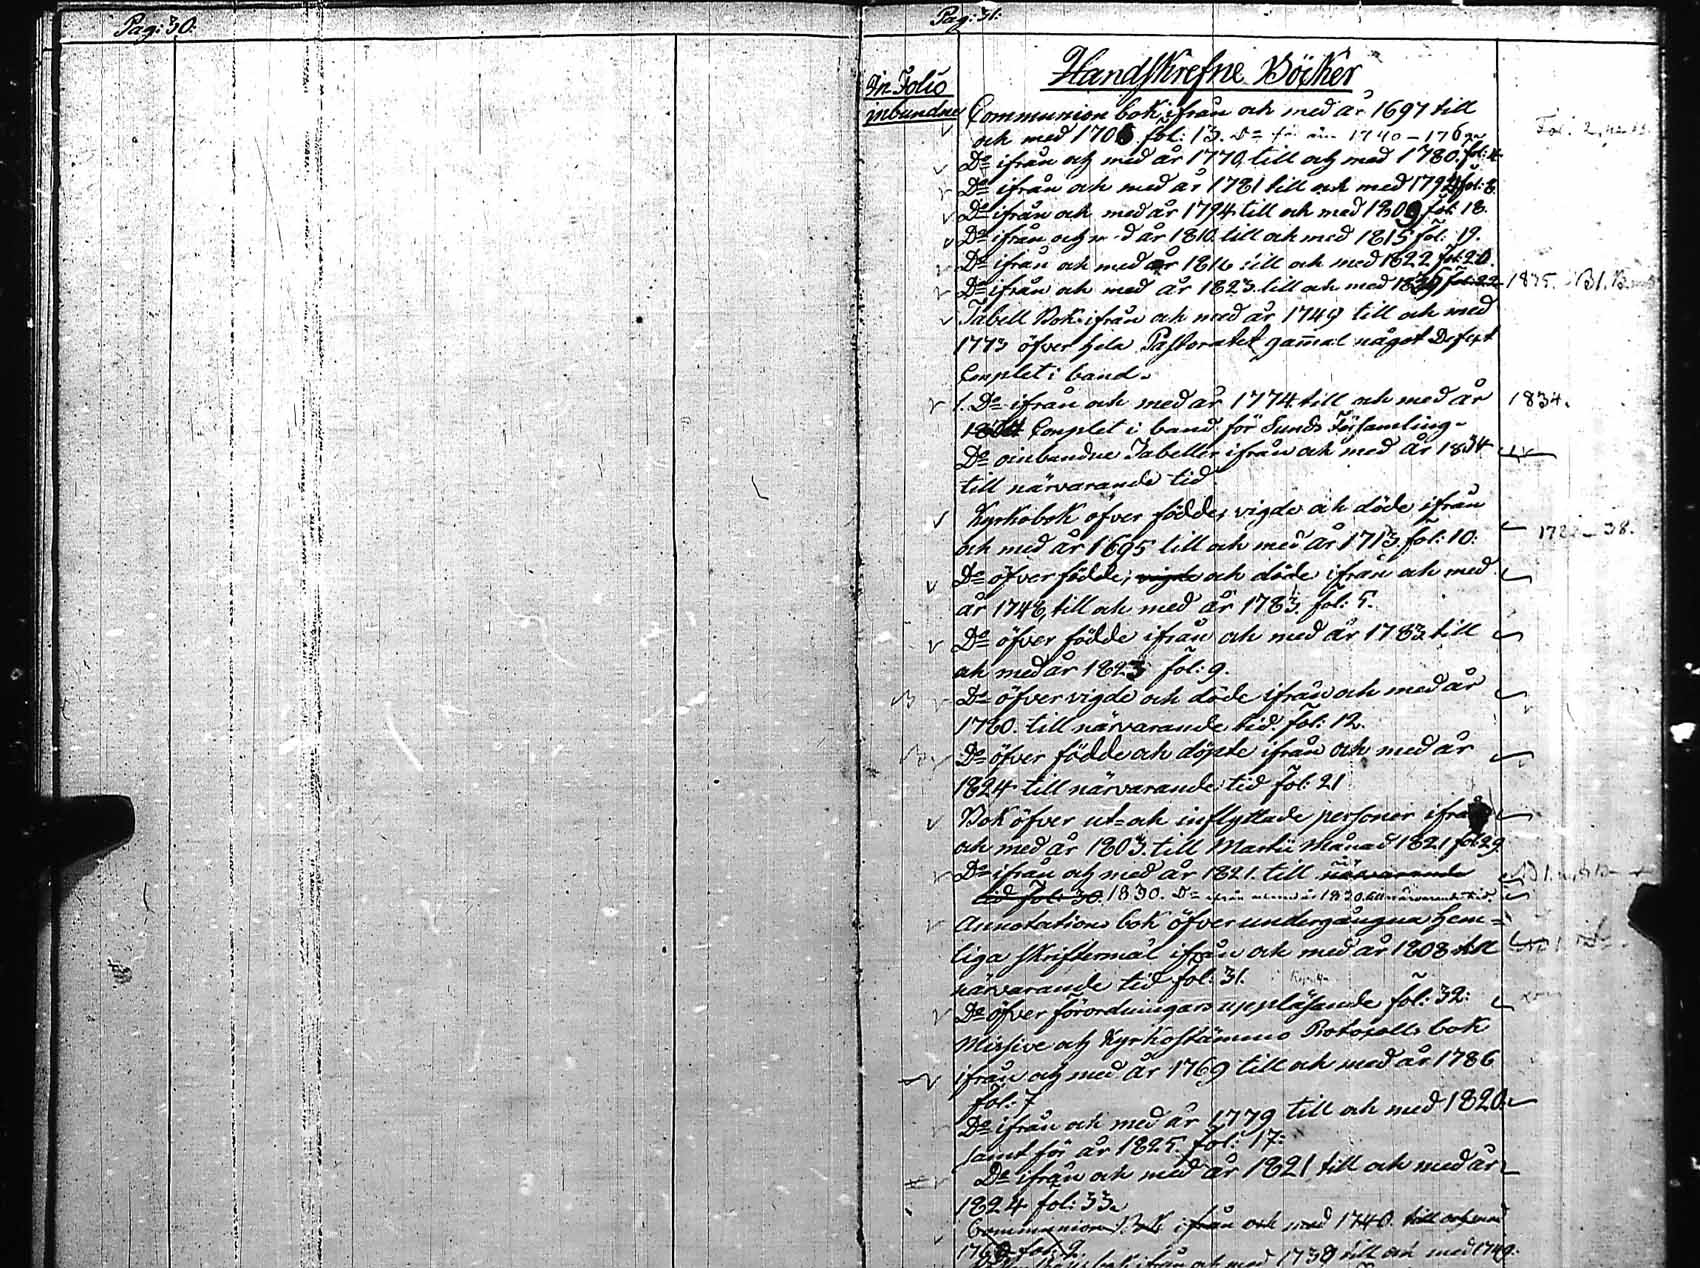 Pag: 30.
Pag: 31.
Handskrefne Böcker
In Folio
inbundne
Communion bok, ifrån och med år 1697 till
och med 1706 fol: 13. Do för åren 1740-176
Do ifrån och med år 1770. till och med 1780. fol: 4
Do ifrån och med år 1781 till och med 1794 fol: 8
Do ifrån och med år 1794 till och med 1809 fol: 18.
Do ifrån och m d år 1810. till och med 1815 fol: 19.
Do ifrån och med år 1816 till och med 1822 fol: 20
Do ifrån och med år 1823. till och med 1835 fol: 22 1835.
Tabell Bok ifrån och med år 1749 till och med
1773 öfver hela Pastoratet gamal något Defext
Complet i band.
1. Do ifrån och med år 1774. till och med år 1834.
Complet i band för Sunds Församling.
Do oinbundne Tabeller ifrån och med år 1834
till närvarande tid
Kyrkobok öfver födde, vigde och döde, ifrån
och med år 1695 till och med år 1713. fol: 10. 38.
Do öfver födde, vigde och döde ifrån och med
år 1748, till och med år 1783. fol: 5.
Do öfver födde ifrån och med år 1783. till
och med år 1823 fol: 9.
Do öfver vigde och döde ifrån och med år
1780. till närvarande tid. fol: 12.
Do öfver födde och döpte ifrån och med år
1824 till närvarande tid fol: 21
Bok öfver ut- och inflyttade personer ifrån
och med år 1803. till Martii Månad 1821 fol: 29
Do ifrån och med år 1821. till närvarande
tid fol: 30. 1830. Do ifrån och med år 1830. till närvarande tid.
Annotations bok öfver undergångna hem=
liga skriftermål ifrån och med år 1808 till
närvarande tid fol: 31.
Do öfver förordningars uppläsande fol: 32.
Missive och Kyrkostämmo Protocolls bok
ifrån och med år 1769 till och med år 1786
fol: 7
Do ifrån och med år 1779 till och med 1820.
samt för år 1825. fol: 17.
Do ifrån och med år 1821 till och med år
1824 fol: 33.
Communion Bok ifrån och med 1740. till och med
176 fol: 2.
bok ifrån och med 1738 till och med 1749.